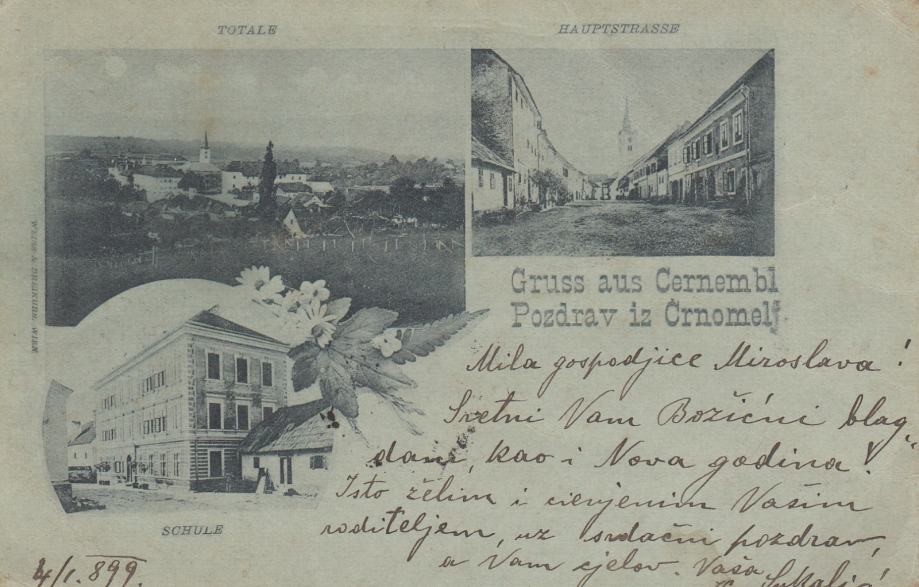 TOTALE
HAUPTSTRASSE
Gruss aus Cernembl
Pozdrav iz Črnomelj
Mila gospodjice Miroslava!
Sretni Vam Božićni blag„
dani, kao i Nova godina!
Isto želim i cienjenim Vašim
roditeljem, uz srdačni pozdrav,
a Vam cjelov. Vaša
SCHULE
4/1. 899.